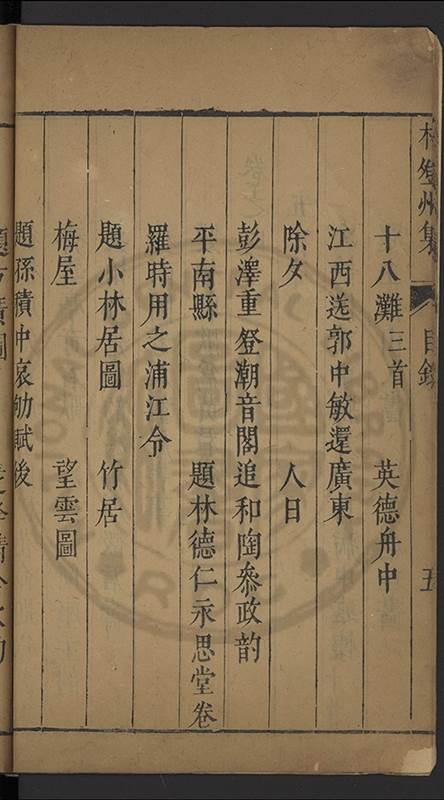 登州集 目錄 五
十八灘三首 英德舟中
江西送郭中敏還廣東
除夕 人日
彭澤重登潮音閣追和陶叅政韵
平南縣 題林德仁永思堂卷
羅時用之浦江令
題小林居圖 竹居
梅屋 望雲圖
題孫積中哀劬賦後